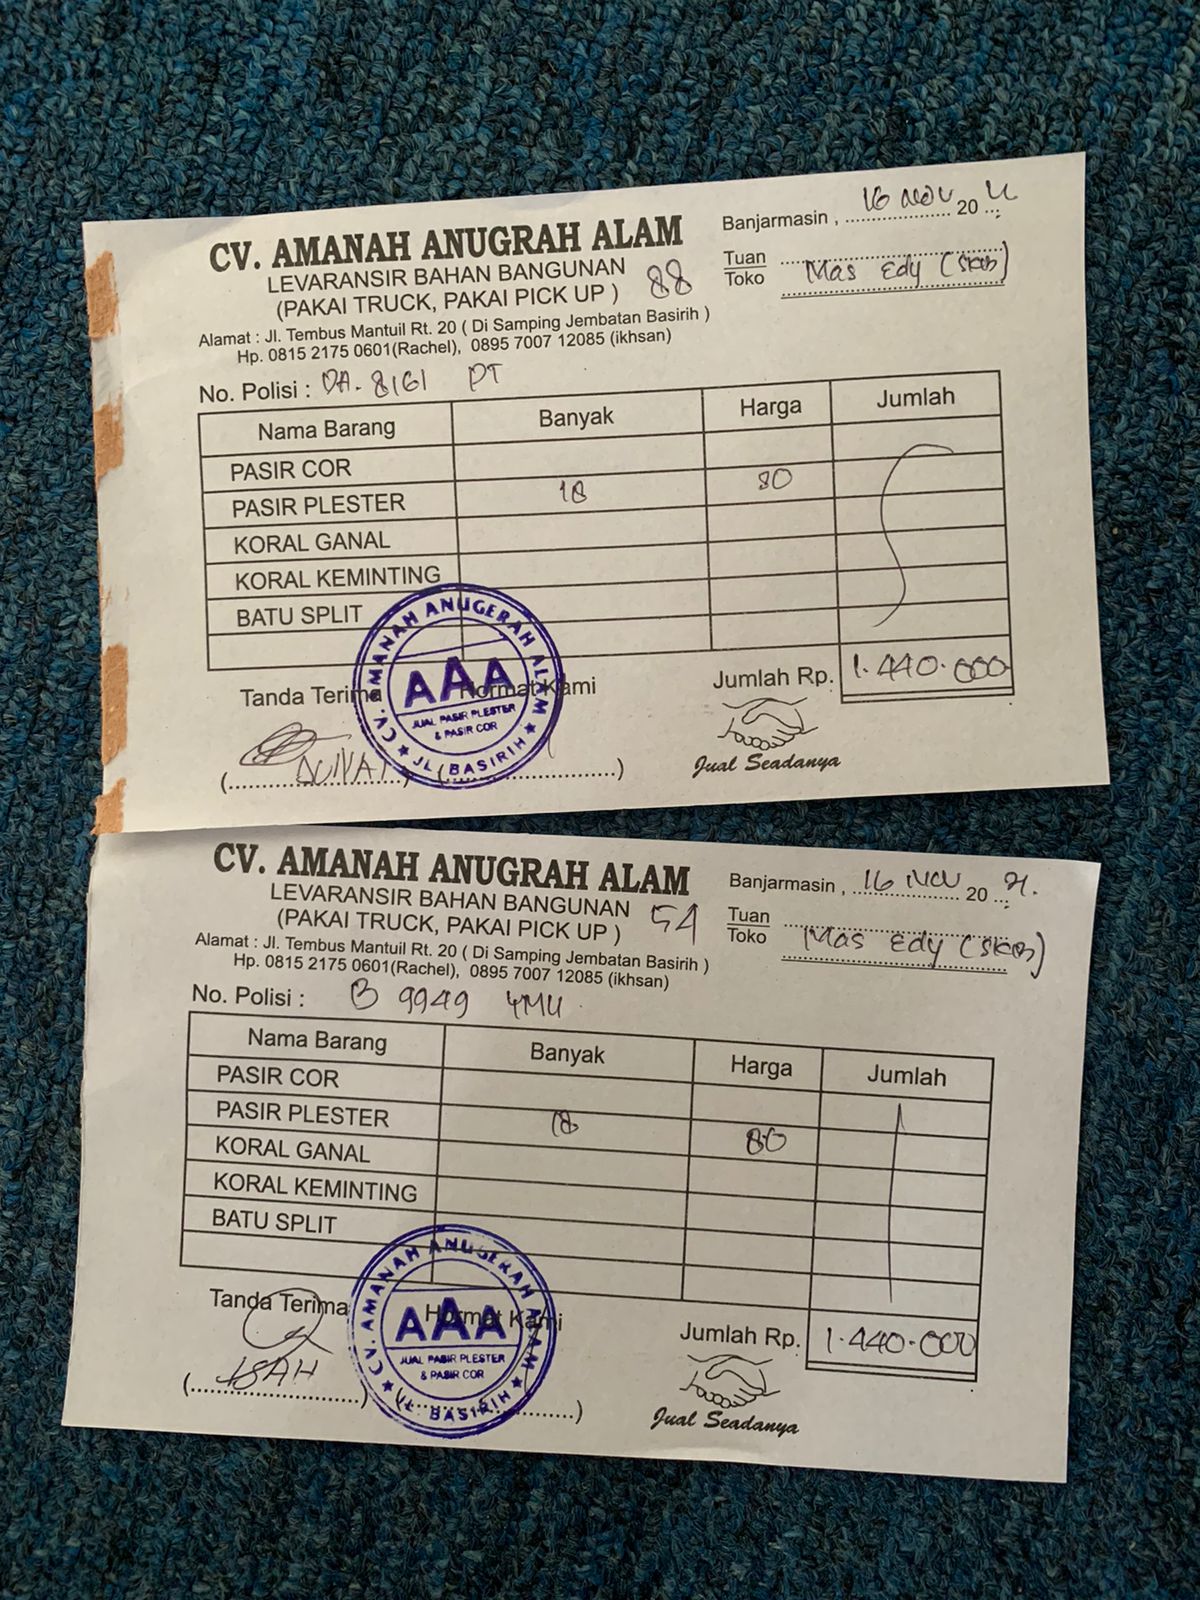 CV. AMANAH ANUGRAH ALAM
LEVARANSIR BAHAN BANGUNAN
(PAKAI TRUCK, PAKAI PICK UP ) 88
Alamat : Jl. Tembus Mantuil Rt. 20 ( Di Samping Jembatan Basirih )
Hp. 0815 2175 0601(Rachel), 0895 7007 12085 (ikhsan)
Banjarmasin , 16 Nov 20
Tuan
Toko Mas Edy
No. Polisi : DA. 8161 PT
Nama Barang Banyak Harga Jumlah
PASIR COR
PASIR PLESTER 18 80
KORAL GANAL
KORAL KEMINTING
BATU SPLIT
Tanda Terima Hormat Kami Jumlah Rp. 1.440.000
CV. AMANAH ANUGERAH ALAM
AAA
JUAL PASIR PLESTER
& PASIR COR
JL. BASIRIH
Jual Seadanya
CV. AMANAH ANUGRAH ALAM
LEVARANSIR BAHAN BANGUNAN
(PAKAI TRUCK, PAKAI PICK UP ) 54
Alamat : Jl. Tembus Mantuil Rt. 20 ( Di Samping Jembatan Basirih )
Hp. 0815 2175 0601(Rachel), 0895 7007 12085 (ikhsan)
Banjarmasin , 16 Nov 20 21.
Tuan
Toko Mas Edy
No. Polisi : B 9949
Nama Barang Banyak Harga Jumlah
PASIR COR
PASIR PLESTER 18 80
KORAL GANAL
KORAL KEMINTING
BATU SPLIT
Tanda Terima Hormat Kami Jumlah Rp. 1.440.000
CV. AMANAH ANUGERAH ALAM
AAA
JUAL PASIR PLESTER
& PASIR COR
JL. BASIRIH
ISAH
Jual Seadanya